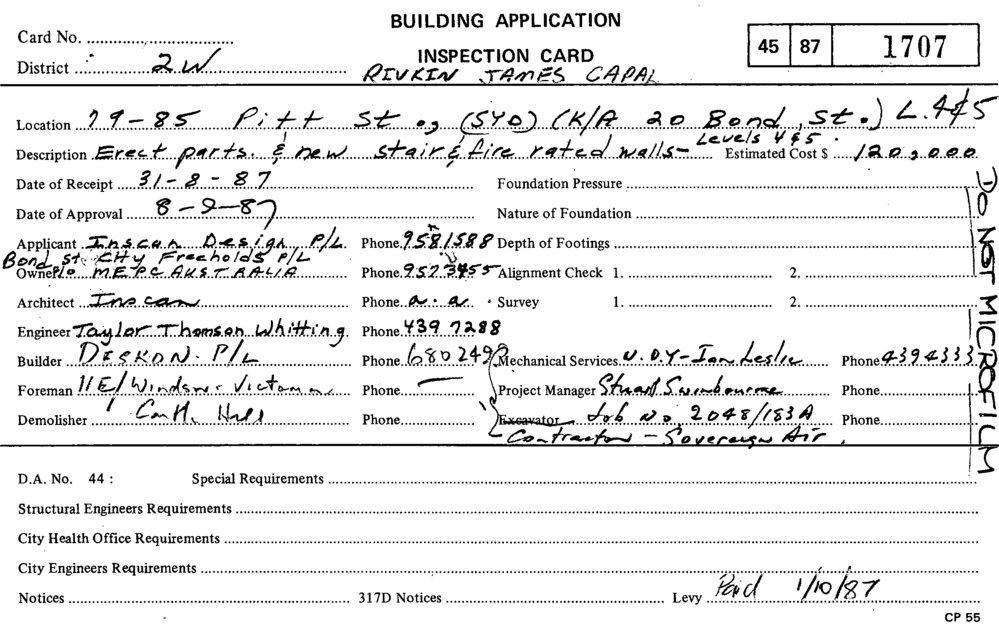 BUILDING APPLICATION
Card No.
INSPECTION CARD
45 87 1707
District 2W
RIVKIN JAMES CAPAL
Location 79-85 Pitt St., (SYD) (K/A 20 Bond St.) L.4&5
Description Erect parts. & new stair & fire rated walls- Levels 4 & 5 Estimated Cost $ 120,000
Date of Receipt 31-8-87 Foundation Pressure
Date of Approval 8-9-87 Nature of Foundation
Applicant Inscan Design P/L Phone 9581588 Depth of Footings
Bond St. City Freeholds P/L
Owner MEPC AUSTRALIA Phone Alignment Check 1. 2.
Architect Inscan Phone a.a. Survey 1. 2.
Engineer Taylor Thomson Whitting Phone 439 7288
Builder DESKON. P/L Phone 680 2499 Mechanical Services - Ian Leslie Phone 4394333
Foreman 11E/ Windsor Phone — Project Manager Stuart Phone
Demolisher Hill Phone Excavator Job No 2048/183A Phone
Contractor - Sovereign Air.
DO NOT MICROFILM
D.A. No. 44 : Special Requirements
Structural Engineers Requirements
City Health Office Requirements
City Engineers Requirements
Notices 317D Notices Levy Paid 1/10/87
CP 55